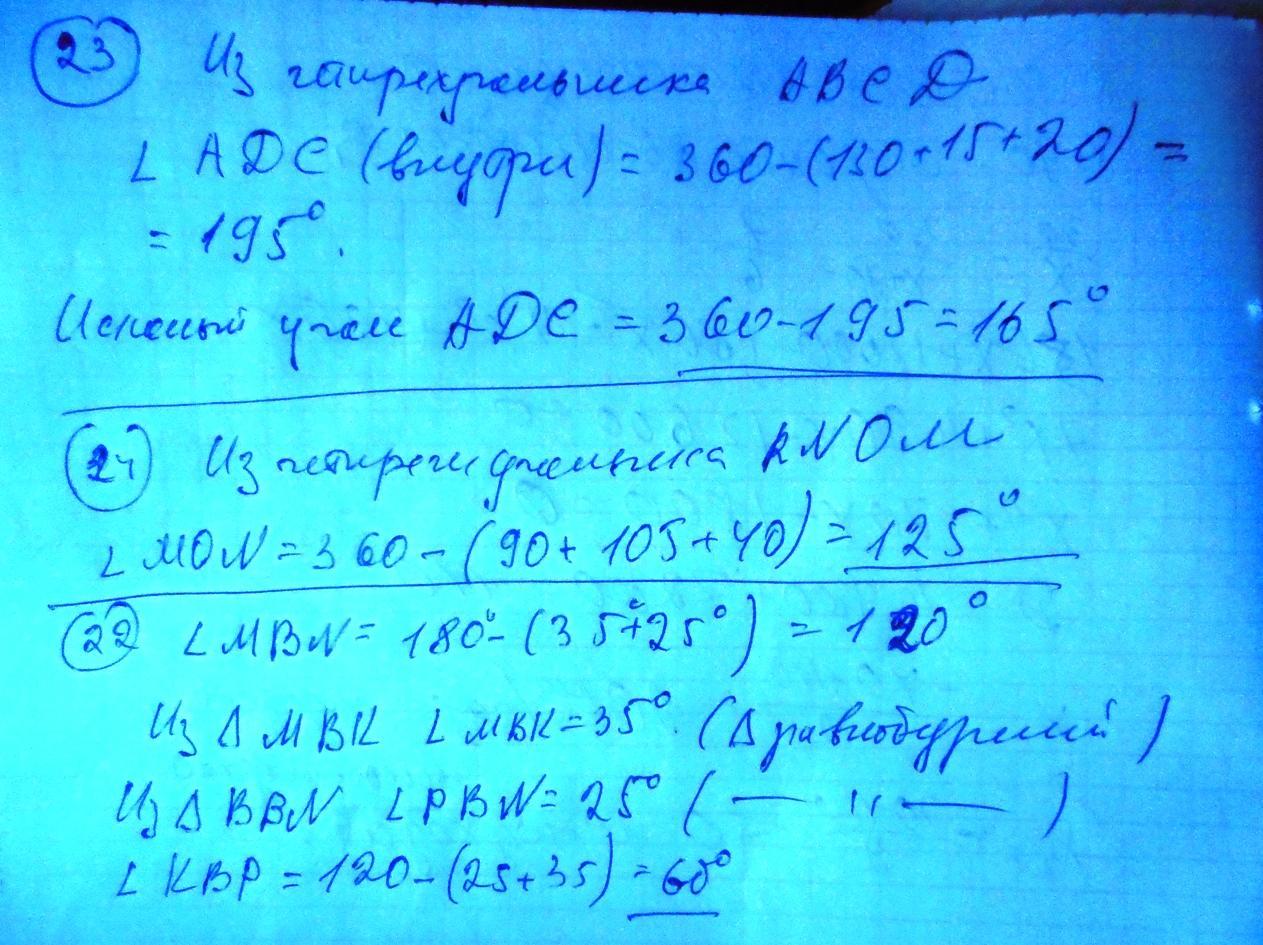 23 Из четырехугольника ABCD
∠ ADC (внутри) = 360-(130+15+20) =
= 195°.
Искомый угол ADC = 360-195=165°
24 Из четырехугольника KNOM
∠MON=360-(90+105+40)=125°
22 ∠MBN= 180°-(35°+25°) = 120°
Из ∆ MBK ∠ MBK=35°. (∆ равнобедренный)
Из ∆ BBN ∠PBN= 25° ( — " — )
∠ KBP = 120-(25+35) = 60°